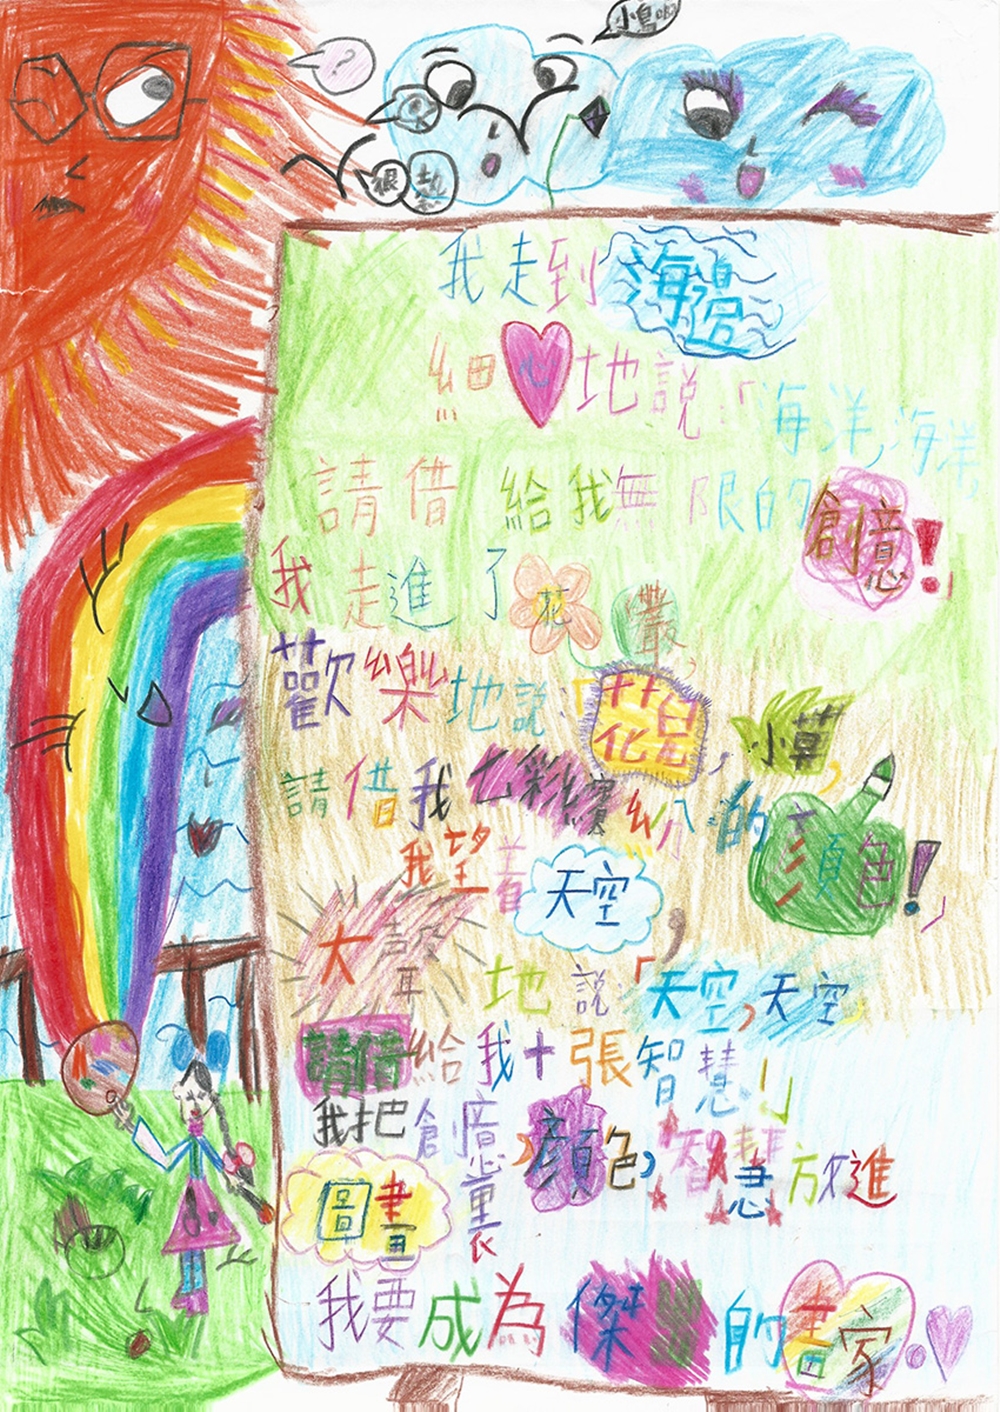 ？
小鳥啊
很熱
我走到海邊
細心地說：「海洋，海洋，
請借給我無限的創意！」
我走進了花叢，
歡樂地說：「花兒，小草，
請借我七彩繽紛的顏色！」
我望着天空，
大聲地說：「天空，天空
請借給我十張智慧」
我把創意，顏色，智慧放進
圖畫裏
我要成為傑出的畫家。